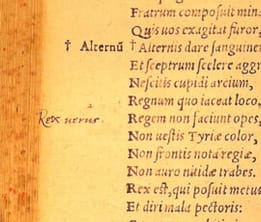 Fratrum composuit min
Quis vos exagitat furor,
† Alternū † Alternis dare sanguinem
Et sceptrum scelere aggr
Nescitis cupidi arcium,
Regnum quo iaceat loco,
Rex verus. Regem non faciunt opes,
Non vestis Tyriæ color,
Non frontis nota regiæ,
Non auro nitidæ trabes.
Rex est, qui posuit metus
Et diri mala pectoris: